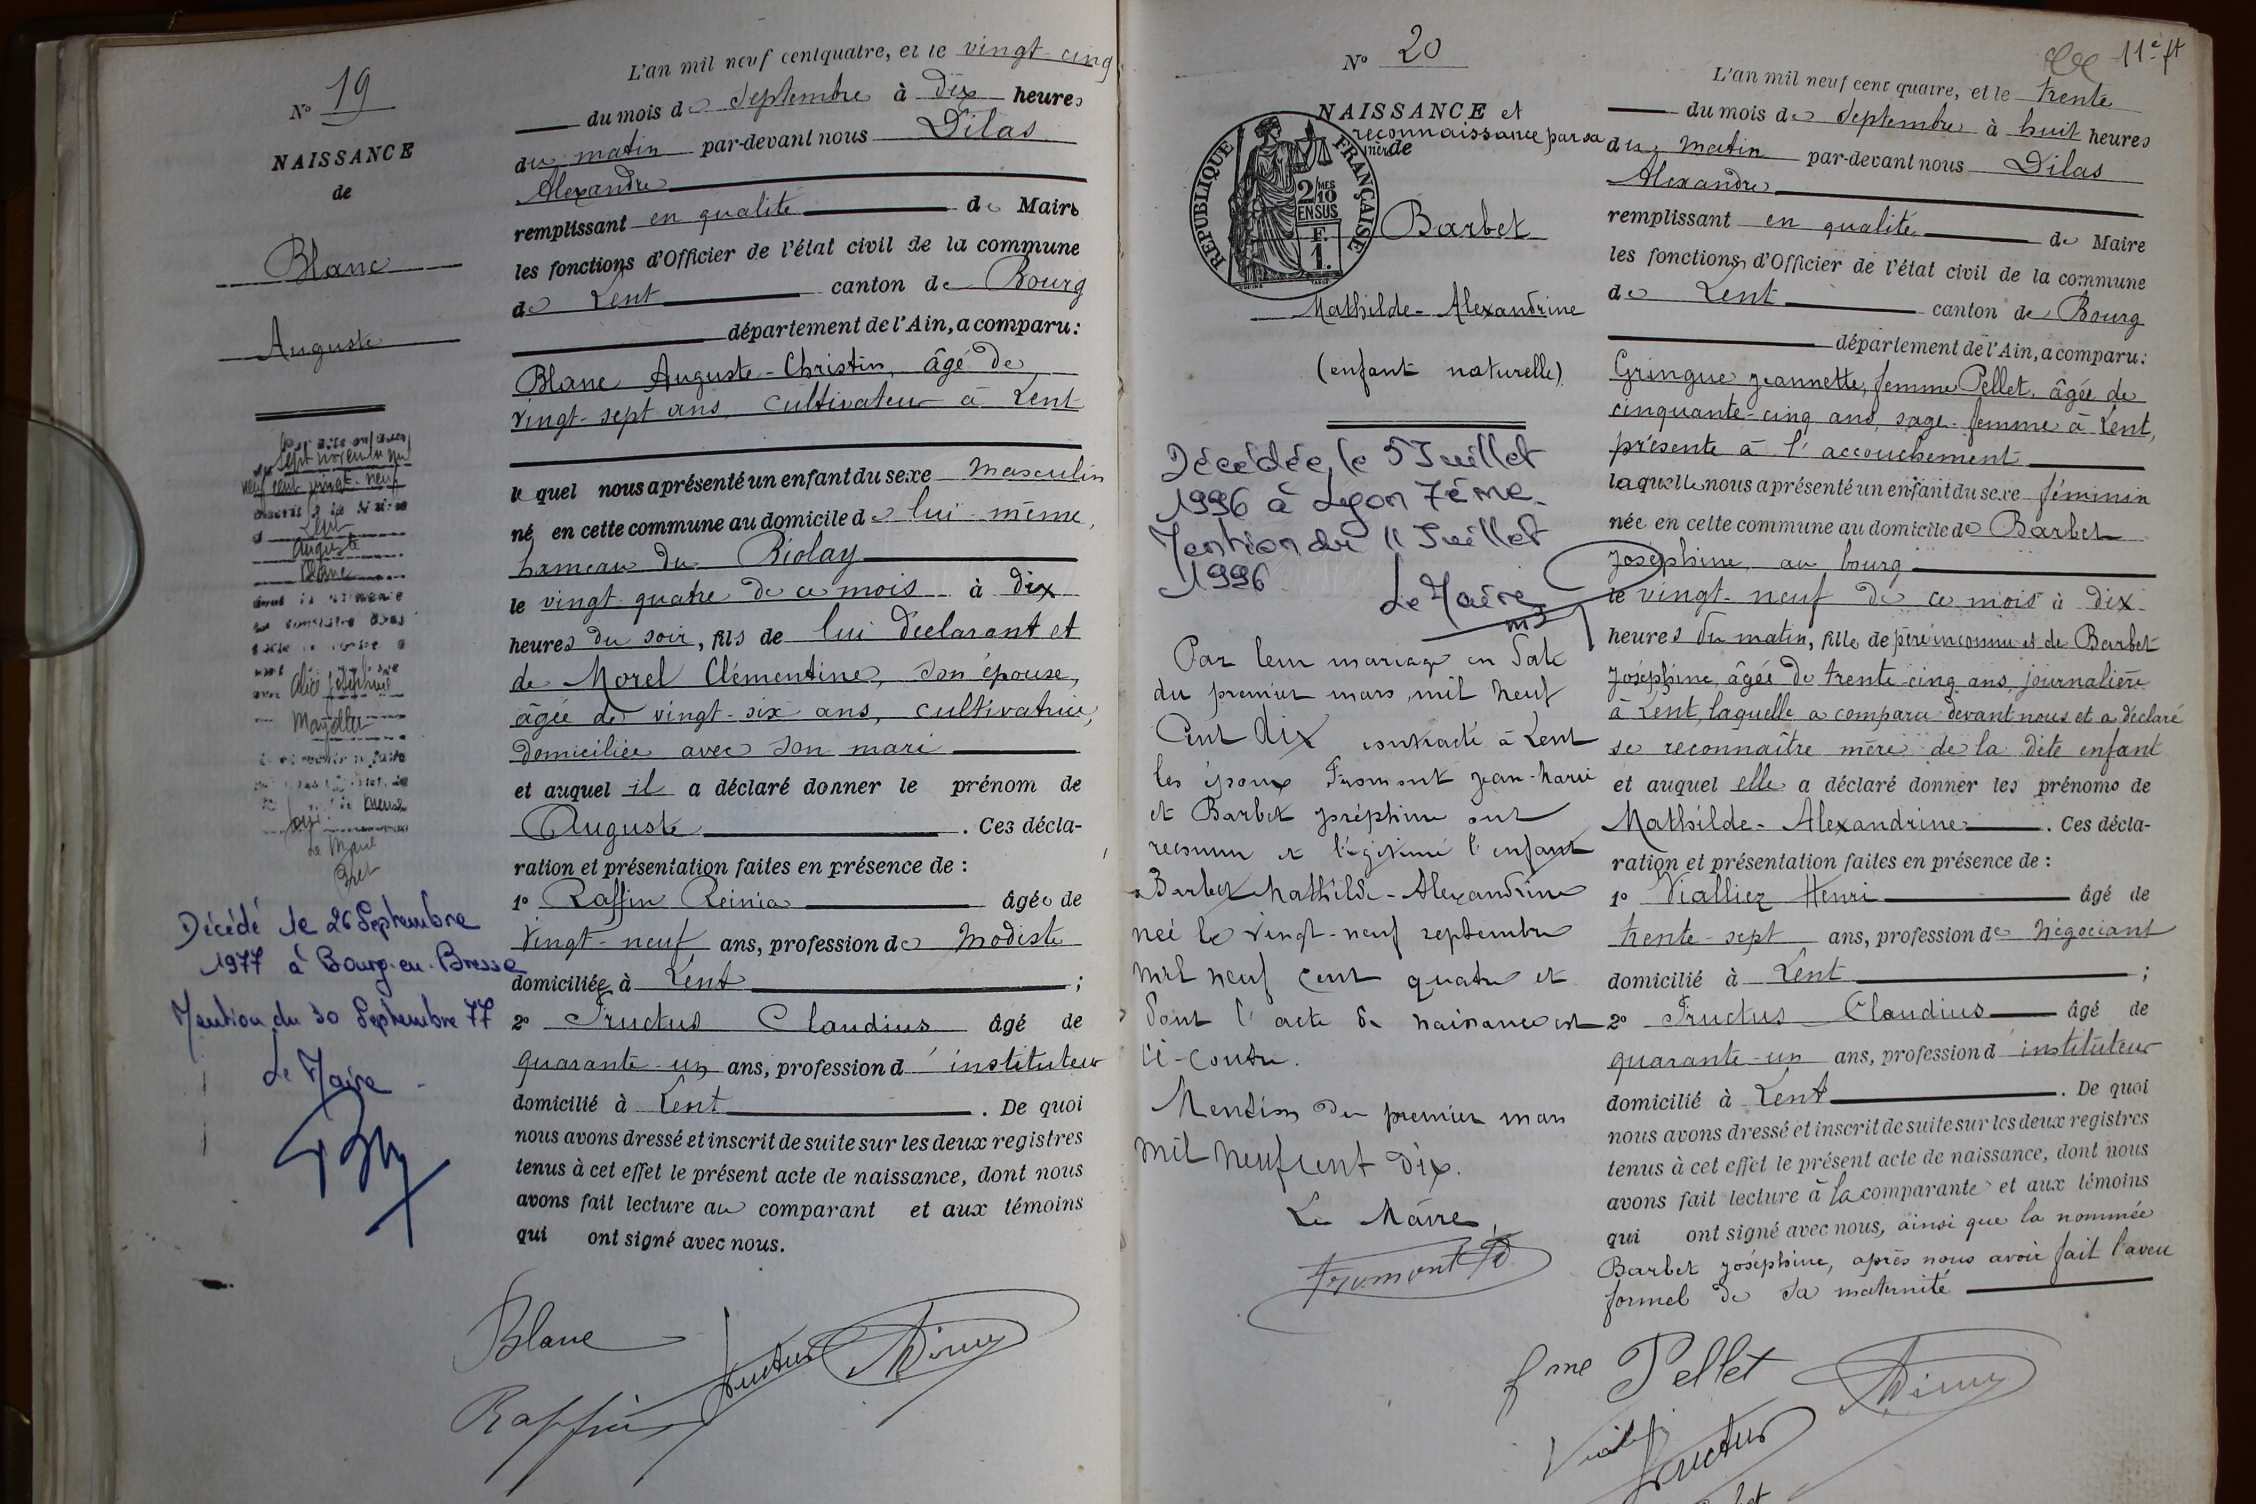 N° 19
NAISSANCE
de
Blanc
Auguste
sept novembre mil
neuf cent vingt-neuf
Lent
Auguste
Blanc
avec Alice Joséphine
Le Maire
Décédé le 26 Septembre
1977 à Bourg-en-Bresse
Mention du 30 Septembre 77
Le Maire
L'an mil neuf cent quatre, et le vingt-cinq
du mois de Septembre à dix heures
du matin par-devant nous Dilas
Alexandre
remplissant en qualité de Maire
les fonctions d'Officier de l'état civil de la commune
de Lent canton de Bourg
département de l'Ain, a comparu:
Blanc Auguste-Christin, âgé de
vingt-sept ans, cultivateur à Lent
le quel nous a présenté un enfant du sexe masculin
né en cette commune au domicile de lui-même,
hameau du Riolay
le vingt-quatre de ce mois à dix
heures du soir, fils de lui déclarant et
de Morel Clémentine, son épouse,
âgée de vingt-six ans, cultivatrice,
domiciliée avec son mari
et auquel il a déclaré donner le prénom de
Auguste. Ces décla-
ration et présentation faites en présence de :
1° Raffin Reinia âgée de
vingt-neuf ans, profession de Modiste
domiciliée à Lent ;
2° Fructus Claudius âgé de
quarante-un ans, profession d'instituteur
domicilié à Lent. De quoi
nous avons dressé et inscrit de suite sur les deux registres
tenus à cet effet le présent acte de naissance, dont nous
avons fait lecture au comparant et aux témoins
qui ont signé avec nous.
Blanc
Fructus
Raffin
N° 20
NAISSANCE et
reconnaissance par sa
mère de
RÉPUBLIQUE FRANÇAISE
2/10
EN SUS
F.
1.
Barbet
Mathilde-Alexandrine
(enfant naturelle)
Décédée le 5 Juillet
1996 à Lyon 7ème
Mention du 11 Juillet
1996
Le Maire
Par leur mariage en date
du premier mars mil neuf
Cent dix contracté à Lent
les époux Fromont Jean-Marie
et Barbet Joséphine ont
reconnu et légitimé l'enfant
Barbet Mathilde-Alexandrine
née le vingt-neuf septembre
mil neuf cent quatre et
dont l'acte de naissance est
ci-contre.
Mention du premier mars
mil neuf cent dix.
Le Maire,
Fromont
11e ft
L'an mil neuf cent quatre, et le trente
du mois de Septembre à huit heures
du matin par-devant nous Dilas
Alexandre
remplissant en qualité de Maire
les fonctions d'Officier de l'état civil de la commune
de Lent canton de Bourg
département de l'Ain, a comparu:
Gringue Jeannette, femme Pellet, âgée de
cinquante-cinq ans, sage-femme à Lent,
présente à l'accouchement
laquelle nous a présenté un enfant du sexe féminin
née en cette commune au domicile de Barbet
Joséphine, au bourg
le vingt-neuf de ce mois à dix
heures du matin, fille de père inconnu et de Barbet
Joséphine, âgée de trente-cinq ans, journalière
à Lent, laquelle a comparu devant nous et a déclaré
se reconnaître mère de la dite enfant
et auquel elle a déclaré donner les prénoms de
Mathilde-Alexandrine. Ces décla-
ration et présentation faites en présence de :
1° Vialliez Henri âgé de
trente-sept ans, profession de négociant
domicilié à Lent ;
2° Fructus Claudius âgé de
quarante-un ans, profession d'instituteur
domicilié à Lent. De quoi
nous avons dressé et inscrit de suite sur les deux registres
tenus à cet effet le présent acte de naissance, dont nous
avons fait lecture à la comparante et aux témoins
qui ont signé avec nous, ainsi que la nommée
Barbet Joséphine, après nous avoir fait l'aveu
formel de sa maternité
fme Pellet
Fructus